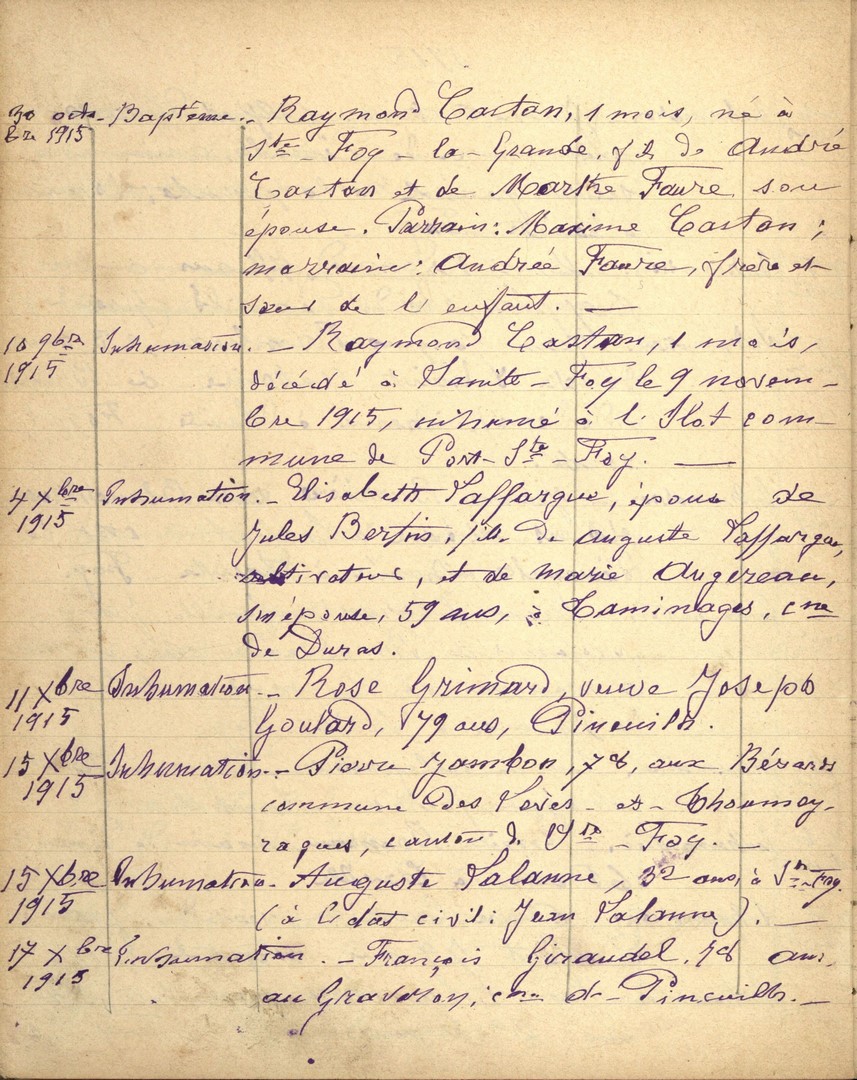 30 octo- Baptême. - Raymond Castan, 1 mois, né à
bre 1915 Ste - Foy - la - Grande, fils de André
Castan et de Marthe Faure son
épouse. Parrain: Maxime Castan;
marraine: Andrée Faure, frère et
sœur de l'enfant. —
10 9bre Inhumation. - Raymond Castan, 1 mois,
1915 décédé à Sainte - Foy le 9 novem-
bre 1915, inhumé à l'Ilot com-
mune de Port - Ste - Foy. —
4 Xbre Inhumation. - Elisabeth Laffargue, épouse de
1915 Jules Bertin, fille de Auguste Laffargue,
cultivateur, et de Marie Augereau,
son épouse, 59 ans, à Caminages, cne
de Duras.
11 Xbre Inhumation. - Rose Grimard, veuve Joseph
1915 Goulard, 79 ans, Pineuilh.
15 Xbre Inhumation. - Pierre Jambon, 78, aux Bézards
1915 commune des Lèves - et - Thoumey-
ragues, canton de Ste - Foy. —
15 Xbre Inhumation. - Auguste Lalanne, 32 ans, à Ste - Foy.
1915 (à l'état civil: Jean Lalanne). —
17 Xbre Inhumation. - François Giraudel, 78 ans,
1915 au cne de Pineuilh. —